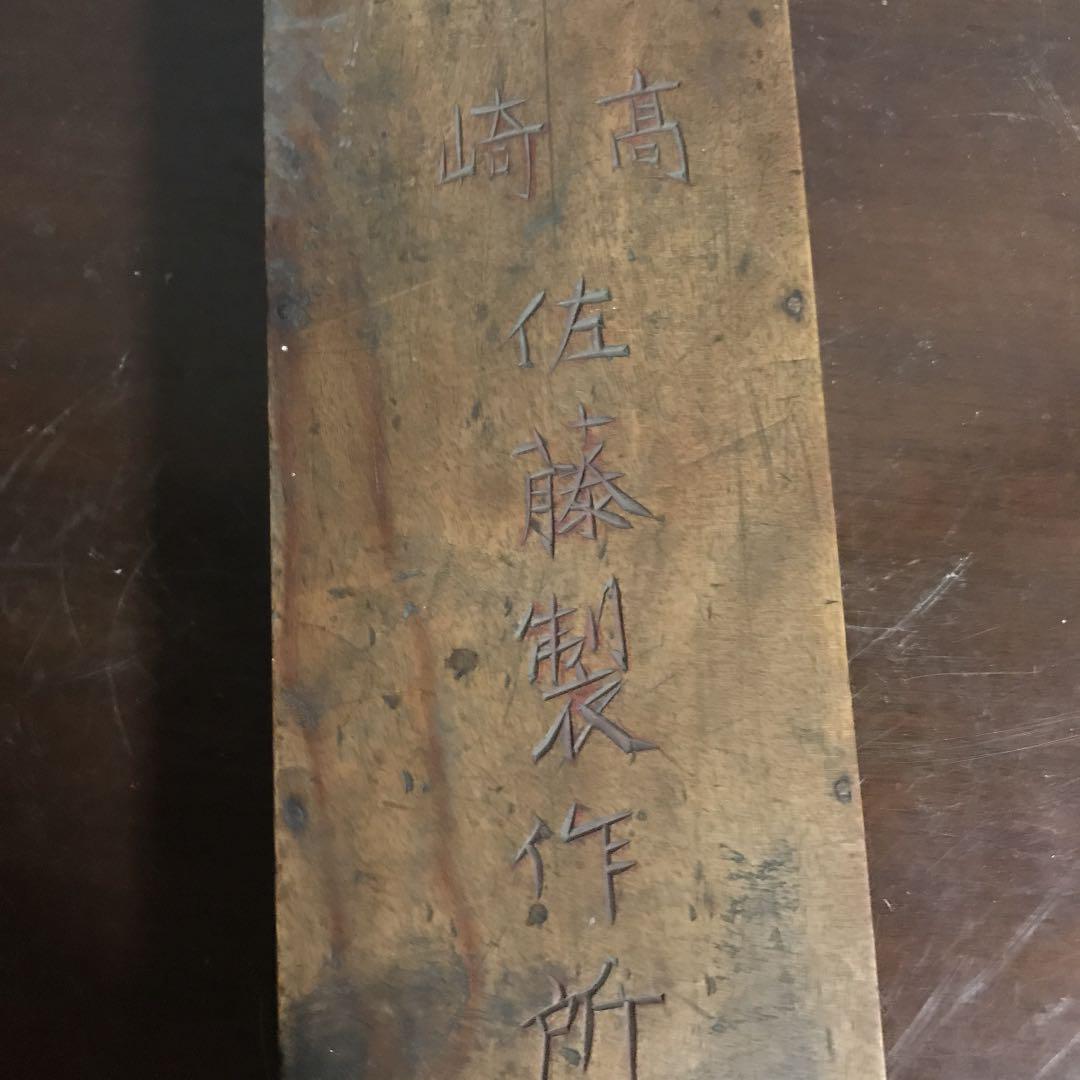 髙崎
佐藤製作所